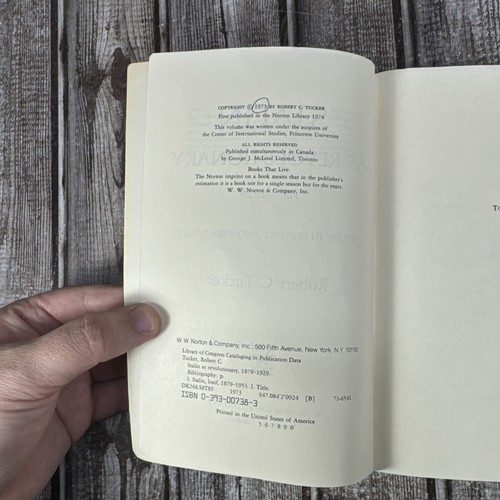 COPYRIGHT © 1973 BY ROBERT C. TUCKER
First published in the Norton Library 1974
This volume was written under the auspices of
the Center of International Studies, Princeton University
ALL RIGHTS RESERVED
Published simultaneously in Canada
by George J. McLeod Limited, Toronto
Books That Live
The Norton imprint on a book means that in the publisher's
estimation it is a book not for a single season but for the years.
W. W. Norton & Company, Inc.
W. W. Norton & Company, Inc., 500 Fifth Avenue, New York, N.Y. 10110
Library of Congress Cataloging in Publication Data
Tucker, Robert C.
Stalin as revolutionary, 1879-1929.
Bibliography: p.
1. Stalin, Iosif, 1879-1953. I. Title.
DK268.S8T85 1973 947.084'2'0924 [B] 73-6541
ISBN 0-393-00738-3
Printed in the United States of America
5 6 7 8 9 0